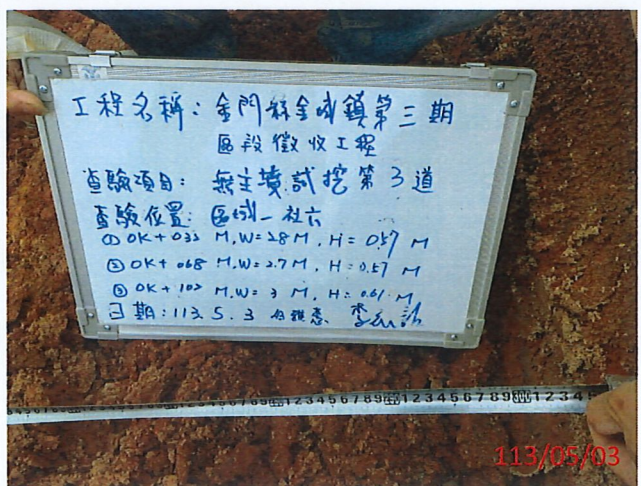 工程名稱：金門縣金城鎮第三期
區段徵收工程
查驗項目：無主墳試挖第3道
查驗位置：區域一社六
① 0K+032 M，W=2.8 M，H=0.57 M
② 0K+068 M，W=2.7 M，H=0.57 M
③ 0K+102 M，W=3 M，H=0.61 M
日期：113.5.3
113/05/03